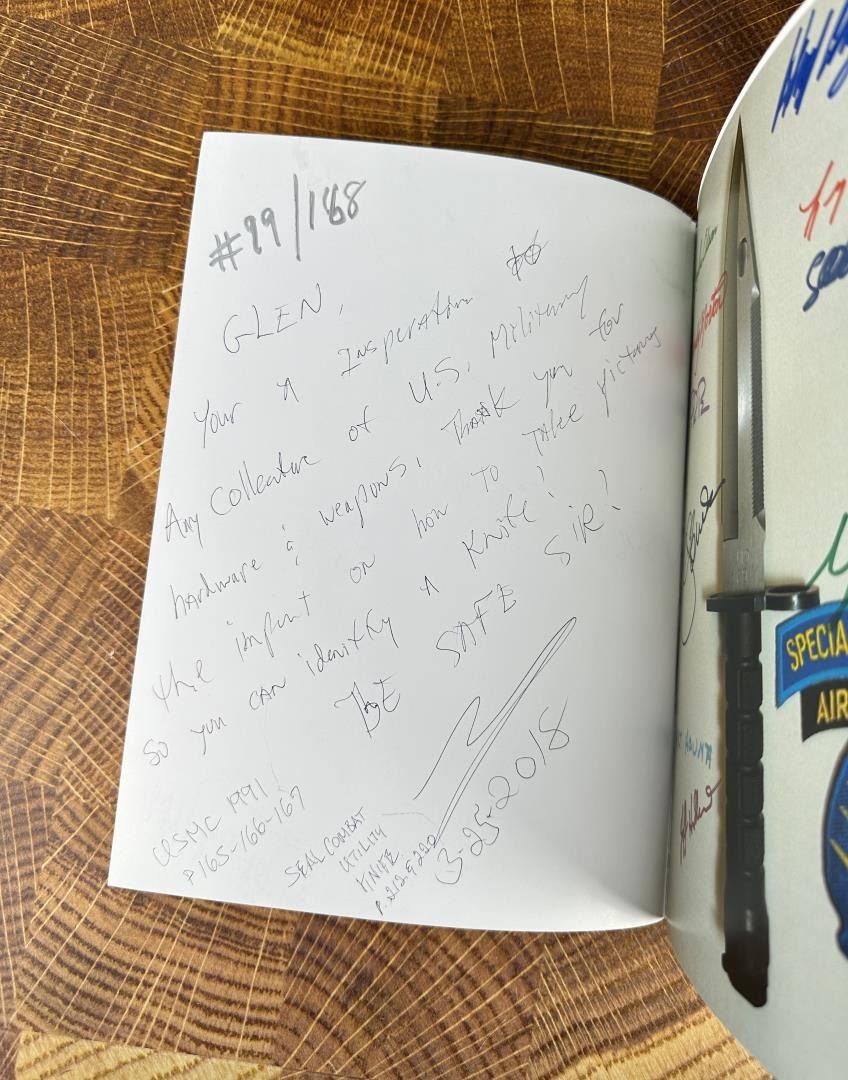 #99/168
GLEN,
Your A Insperation to
Any Collector of U.S. Military
hardware & weapons, Thank you for
the imput on how to take pictures
so you can identify a knife!
BE SAFE SIR!
3-25-2018
USMC 1991
P165-166-167
SEAL COMBAT
UTILITY
KNIFE
P. 212 & 220
SPECIA
AIR